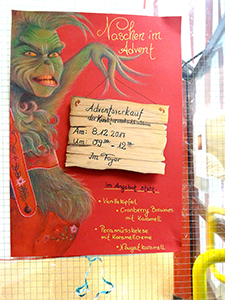 Naschen im
Advent
Adventsverkauf
der
Am: 8.12.2017
Um: 09:30 - 12:30
Im Foyer
Im Angebot
• Vanillekipferl
• Cranberry Brownies
mit Karamell
• Pecannüsskekse
mit Karamellcreme
• Nougat karamell